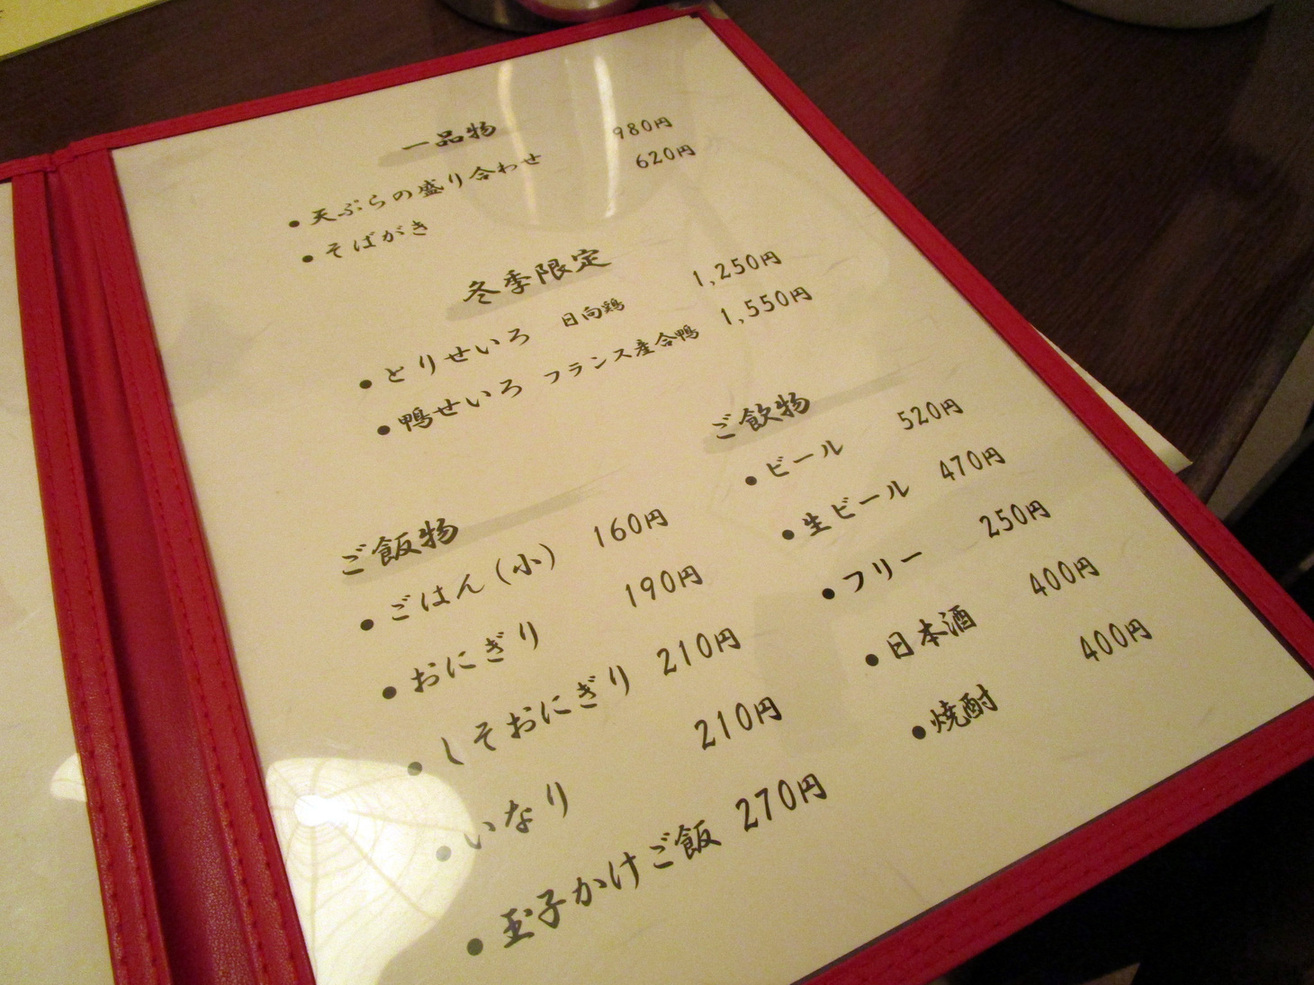 一品物
•天ぷらの盛り合わせ 980円
•そばがき 620円
冬季限定
•とりせいろ 日向鶏 1,250円
•鴨せいろ フランス産合鴨 1,550円
ご飯物
•ごはん(小) 160円
•おにぎり 190円
•しそおにぎり 210円
•いなり 210円
•玉子かけご飯 270円
ご飲物
•ビール 520円
•生ビール 470円
•フリー 250円
•日本酒 400円
•焼酎 400円